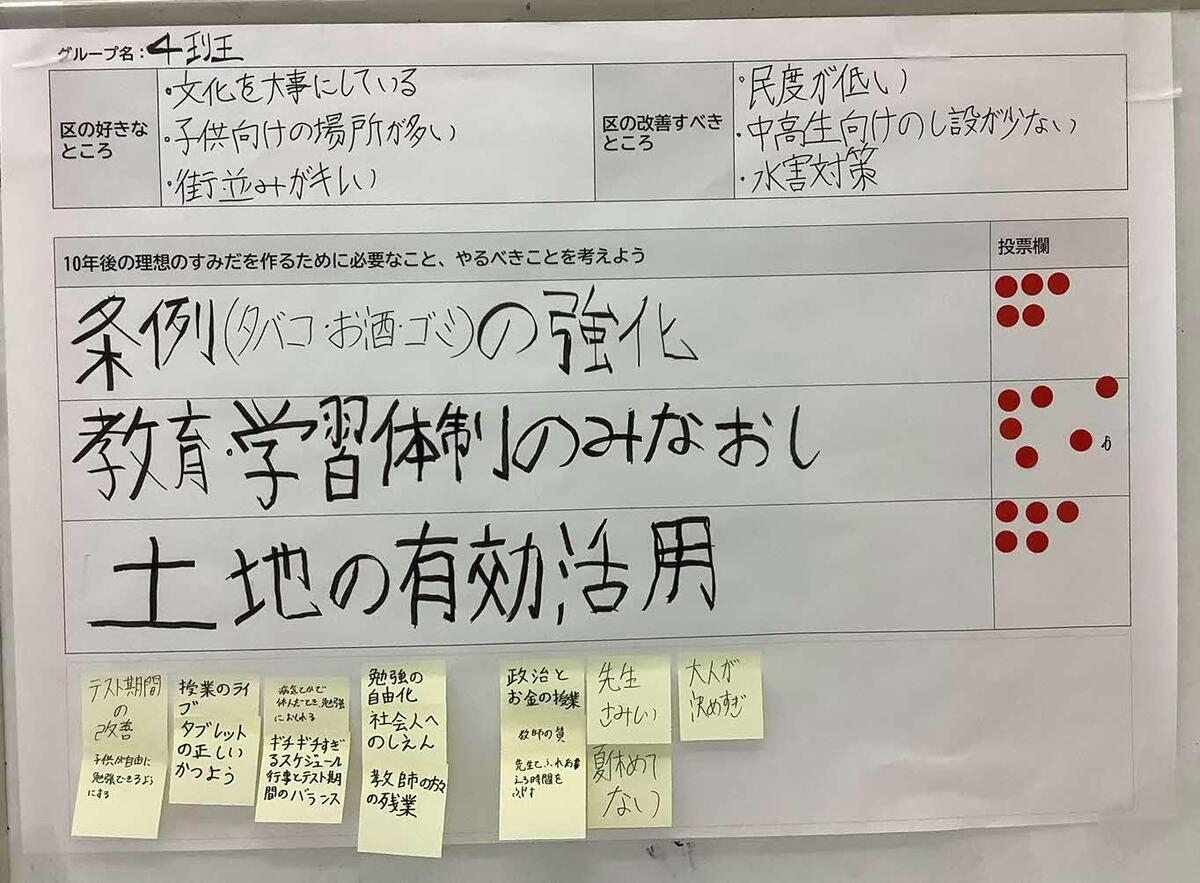 グループ名：4班
区の好きな
ところ
・文化を大事にしている
・子供向けの場所が多い
・街並みがキレい
区の改善すべき
ところ
・民度が低い
・中高生向けのし設が少ない
・水害対策
10年後の理想のすみだを作るために必要なこと、やるべきことを考えよう
投票欄
条例(タバコ・お酒・ゴミ)の強化
教育・学習体制のみなおし
土地の有効活用
テスト期間
の
改善
子供が自由に
勉強できるよう
にする
授業のライ
ブ
タブレット
の正しい
かつよう
病気とかで
休んだとき、勉強
におくれる
ギチギチすぎ
るスケジュール
行事とテスト期
間のバランス
勉強の
自由化
社会人へ
のしえん
教師の方々
の残業
政治と
お金の授業
教師の質
先生とふれあ
える時間を
ふやす
先生
さみしい
夏休めて
ない
大人が
決めすぎ